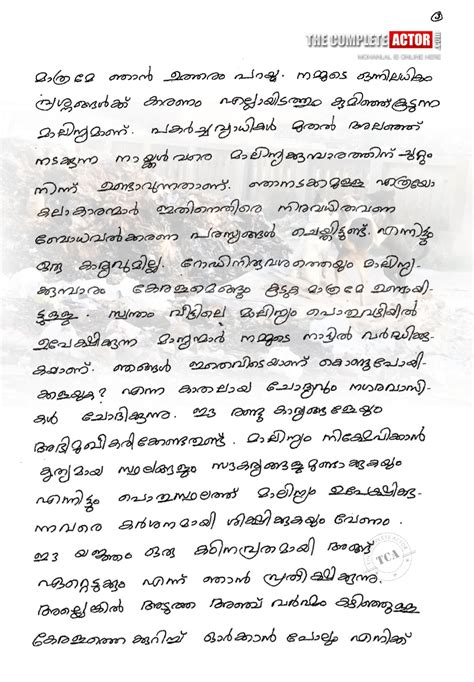 3
THE COMPLETE ACTOR .COM
MOHANLAL IS ONLINE HERE
മാത്രമേ ഞാൻ ഉത്തരം പറയൂ. നമ്മുടെ ഒന്നിലധികം
പ്രശ്നങ്ങൾക്ക് കാരണം എല്ലായിടത്തും കുമിഞ്ഞുകൂടുന്ന
മാലിന്യമാണ്. പകർച്ചവ്യാധികൾ മുതൽ അലഞ്ഞ്
നടക്കുന്ന നായ്ക്കൾ വരെ മാലിന്യക്കൂമ്പാരത്തിന് ചുറ്റും
നിന്ന് ഉണ്ടാവുന്നതാണ്. ഞാനടക്കമുള്ള എത്രയോ
കലാകാരന്മാർ ഇതിനെതിരെ നിരവധിതവണ
ബോധവൽക്കരണ പരസ്യങ്ങൾ ചെയ്തിട്ടുണ്ട്. എന്നിട്ടും
ഒരു കാര്യവുമില്ല. റോഡിനിരുവശത്തെയും മാലിന്യ-
ക്കൂമ്പാരം കേരളമെങ്ങും കൂടുക മാത്രമേ ഉണ്ടായി-
ട്ടുള്ളൂ. സ്വന്തം വീട്ടിലെ മാലിന്യം പൊതുവഴിയിൽ
ഉപേക്ഷിക്കുന്ന മാന്യന്മാർ നമ്മുടെ നാട്ടിൽ വർദ്ധിക്കു-
കയാണ്. ഞങ്ങൾ ഇതെവിടെയാണ് കൊണ്ടുപോയി-
ക്കളയുക? എന്ന കാതലായ ചോദ്യവും നഗരവാസി-
കൾ ചോദിക്കുന്നു. ഈ രണ്ടു കാര്യങ്ങളേയും
അഭിമുഖീകരിക്കേണ്ടതുണ്ട്. മാലിന്യം നിക്ഷേപിക്കാൻ
കൃത്യമായ സ്ഥലങ്ങളും സൗകര്യങ്ങളുമുണ്ടാക്കുകയും
എന്നിട്ടും പൊതുസ്ഥലത്ത് മാലിന്യം ഉപേക്ഷിക്കു-
ന്നവരെ കർശനമായി ശിക്ഷിക്കുകയും വേണം.
ഈ യജ്ഞം ഒരു കഠിനവ്രതമായി അങ്ങ്
ഏറ്റെടുക്കും എന്ന് ഞാൻ പ്രതീക്ഷിക്കുന്നു.
അല്ലെങ്കിൽ അടുത്ത അഞ്ച് വർഷം കഴിഞ്ഞുള്ള
കേരളത്തെക്കുറിച്ച് ഓർക്കാൻ പോലും എനിക്ക്
TCA